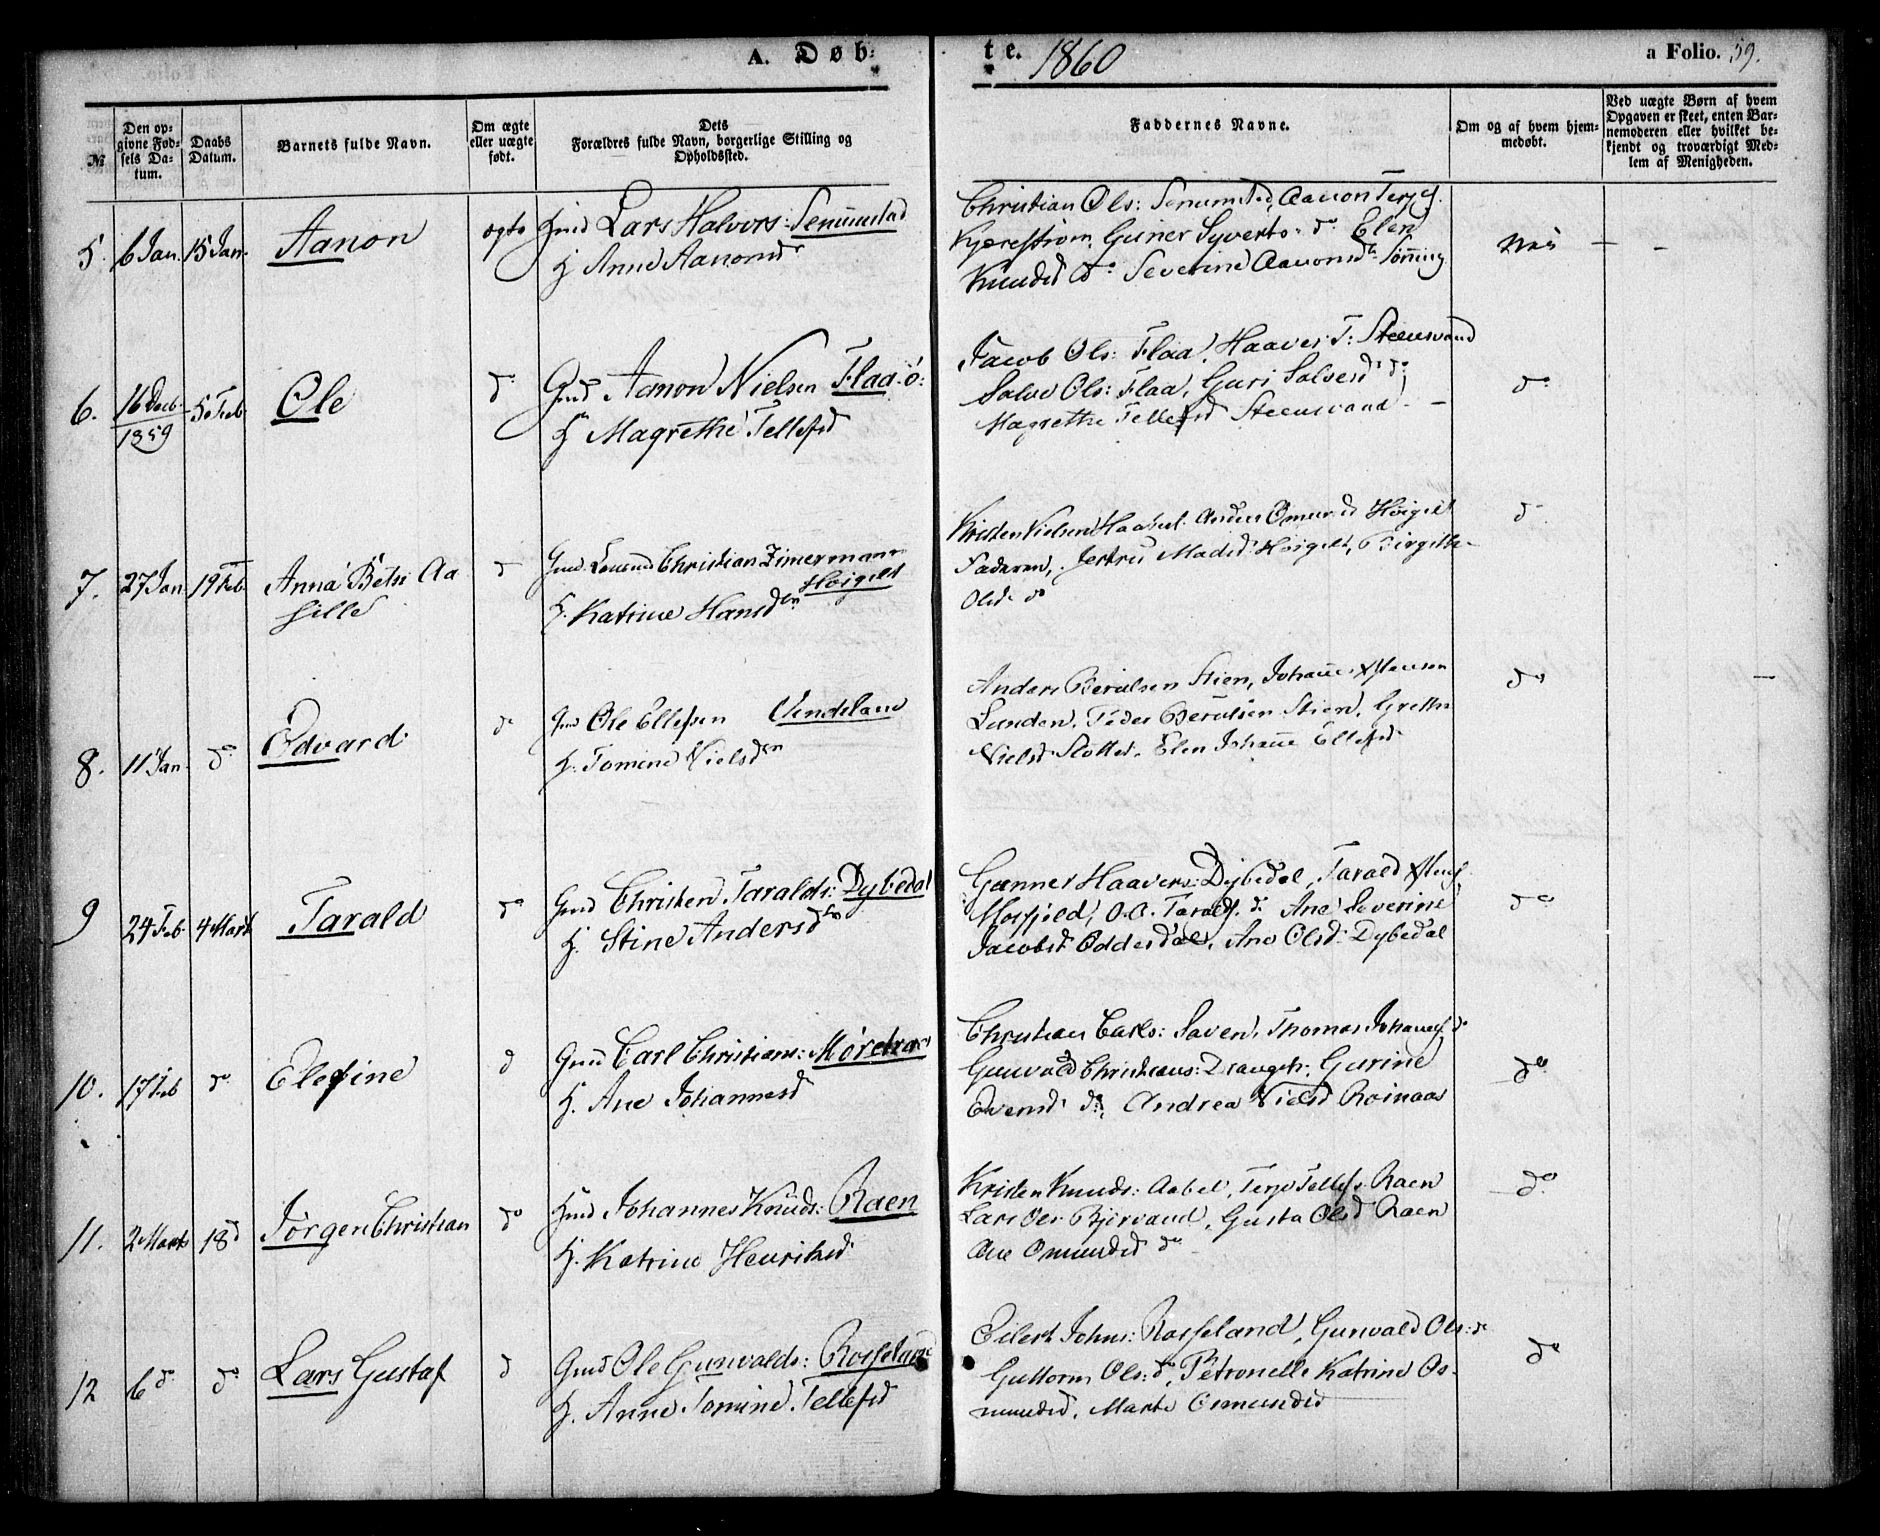 A. Døb-
te. 1860
a Folio. 59.
№
Den op-
givne Fød-
sels Da-
tum.
Daabs
Datum.
Barnets fulde Navn.
Om ægte
eller uægte
født.
Dets
Forældres fulde Navn, borgerlige Stilling og
Opholdssted.
Faddernes Navne.
Om og af hvem hjem-
medøbt.
Ved uægte Børn af hvem
Opgaven er skeet, enten Bar-
nemoderen eller hvilket be-
kjendt og troværdigt Med-
lem af Menigheden.
5. 6 Jan. 15 Jan. Aanon ægte Gmd Lars Halvors: Senumstad
H Anne Aanonsd
Christian Ols: Senumsted, Aanon Terjes.
Kjærestrøm, Guner Syverts. do Elen
Knudsd do Severine Aanonsd
Nei — -
6. 16 Decb. 1859 5 Feb Ole do Gmd Aanon Nielsen Flaa
H Magrethe Tellefsd
Jacob Ols: Flaa, Haaver T: Steensvand
Salve Ols: Flaa, Guri Salvesd do
Magrethe Tellefsd Steensvand —
do
7. 27 Jan. 19 Feb. Anna Betsi Aa
sille
do Gmd. Christian Zimermann
Høigilt
H. Katrine Hansdtr
Kristen Nielsen
Faderen, Madsd Høigilt, Birgitte
Olsd do
do
8. 11 Jan do Edvard do Gmd Ole Ellefsen Vendeland
H. Tomine Nielsdtr
Anders Berulsen Stien, Johannes
Lunden, Peder Berulsen Stien, Grethe
Nielsd Slottet, Elen Johanne Ellefsd
do —
9 24 Feb. 4 Mart Tarald do Gmd Christen Taralds: Dybedal
H. Stine Andersdtr
Gunner Haavers: Dybedal, Tarald
Mosfjeld, O. O. Taralds. do Ane Severine
Jacobsd Oddersdal, Ane Olsd: Dybedal
do
10. 17 Feb do Elefine do Gmd Carl Christians:
H. Ane Johannesd
Christian Carls: Saven, Thomas Johannes. do
Gunvald Christians: Dranget, Gurine
Evensd do, Andrea Nielsd Roinaas
do
11. 2 Marts 18 do Jørgen Christian do Gmd Johannes Knuds: Raen
H. Katrine Henriksd
Kristen Knuds: Aabel, Terje Tellefs. Raen
Lars Ols. Bjørvand, Gusta Olsd Raen
Ane Omundsd do
do
12 6 do do Lars Gustaf do Gmd Ole Gunvalds: Rosseland
H. Anne Tomine Tellefsd
Eilert Johns: Rosseland, Gunvald Ols: do
Guttorm Ols: do, Petronelle Katrine Os-
mundsd, Marte Osmundsd
do